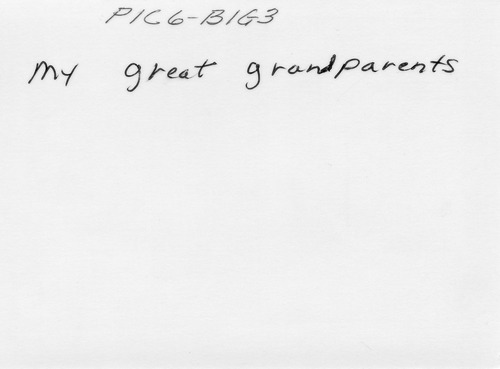 PIC6-BIG3
My great grandparents